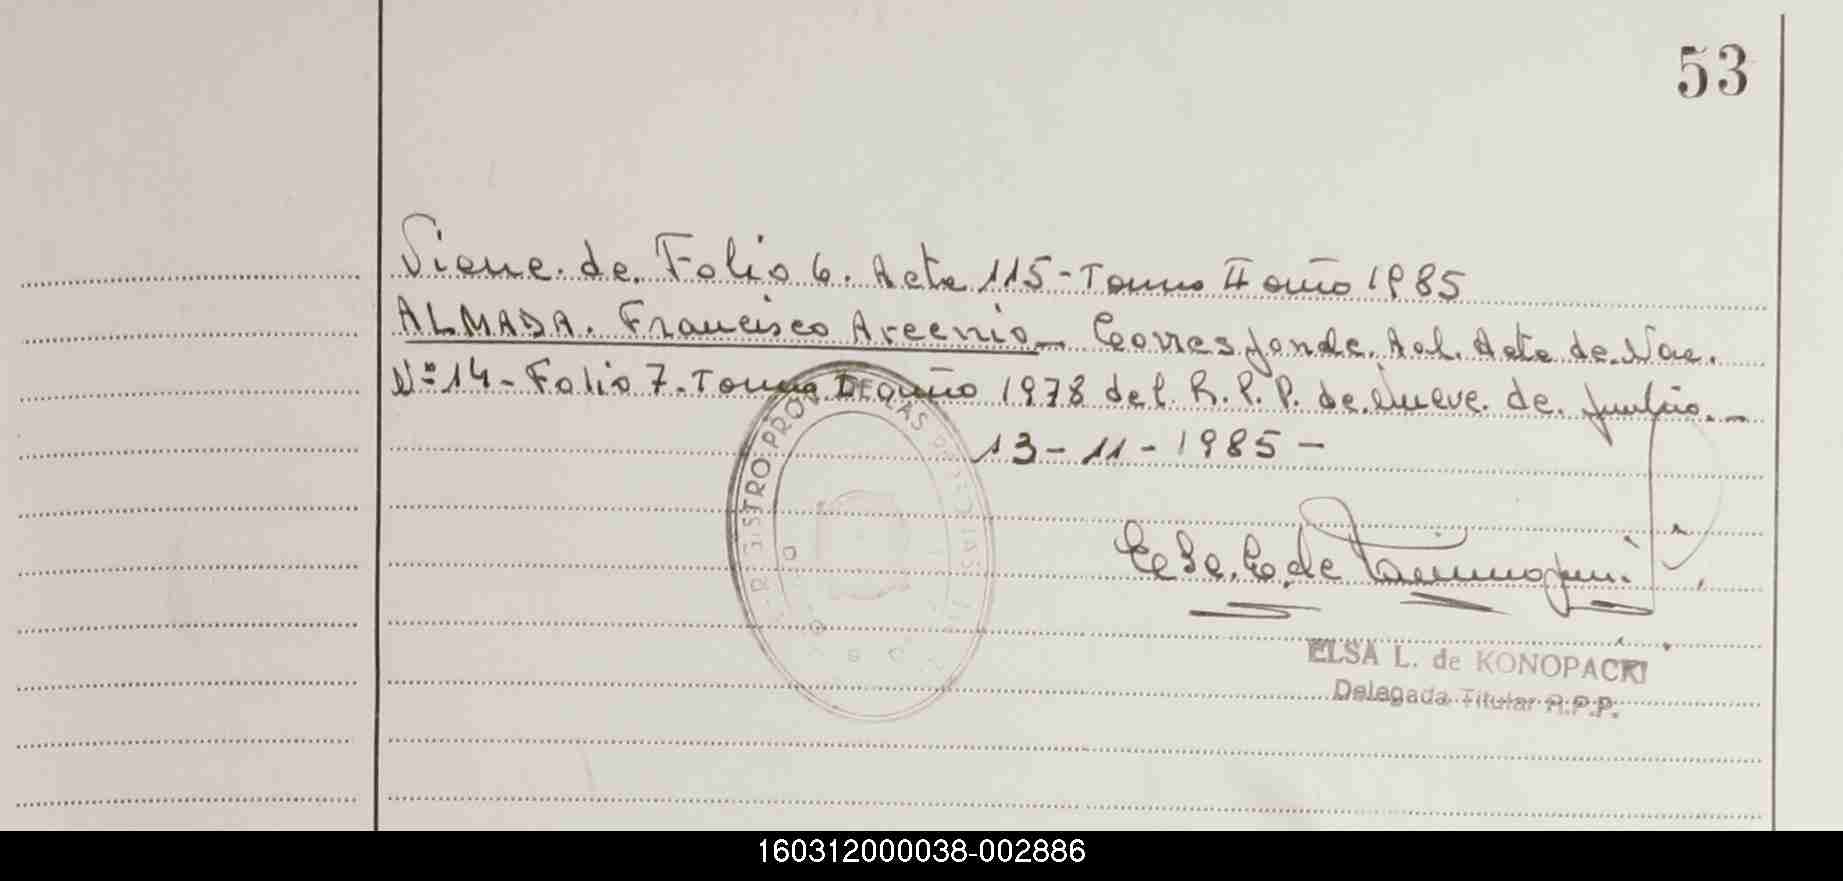 53
Viene de Folio 6. Acta 115 - Tomo II año 1985
ALMADA. Francisco Arcenio - Corresponde. Al. Acta de Nac.
Nº 14 - Folio 7. Tomo I año 1978 del R.P.P. de Nueve. de Julio. -
13-11-1985 -
REGISTRO PROV DE LAS PERSONAS
ELSA L. de KONOPACKI
Delegada Titular R.P.P.
160312000038-002886